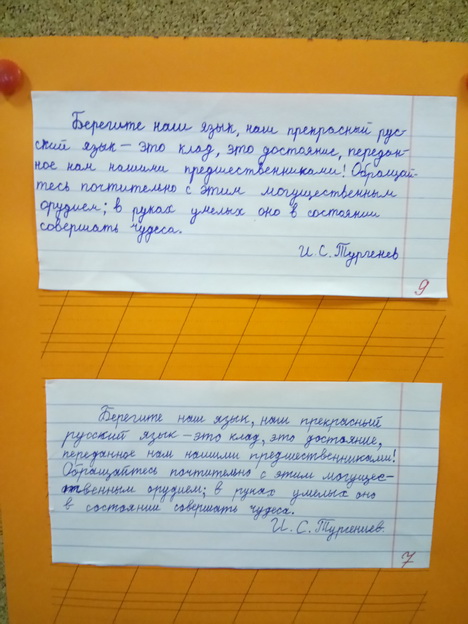 Берегите наш язык, наш прекрасный рус-
ский язык – это клад, это достояние, передан-
ное нам нашими предшественниками! Обращай-
тесь почтительно с этим могущественным
орудием; в руках умелых оно в состоянии
совершать чудеса.
И. С. Тургенев
9
Берегите наш язык, наш прекрасный
русский язык – это клад, это достояние,
переданное нам нашими предшественниками!
Обращайтесь почтительно с этим могущес-
твенным орудием; в руках умелых оно
в состоянии совершать чудеса.
И. С. Тургениев.
7